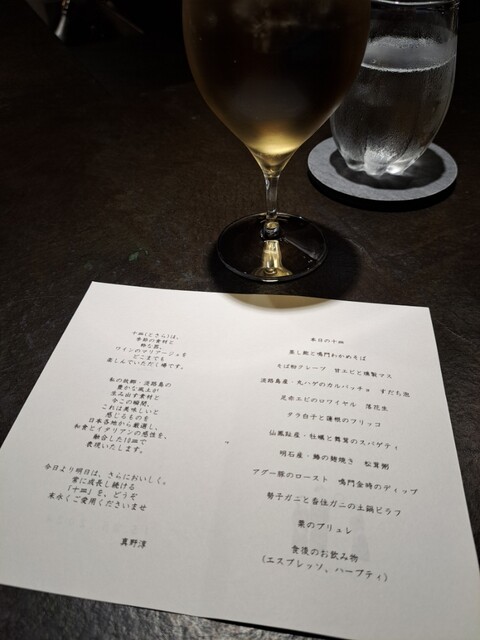 十皿(とさら)は、
季節の素材と
粋な器、
ワインのマリアージュを
どこまでも
楽しんでいただく場です。
私の故郷・淡路島の
豊かな風土が
生み出す素材と
今この瞬間、
これは美味しいと
感じるものを
日本各地から厳選し、
和食とイタリアンの感性を、
融合した10皿で
表現いたします。
今日より明日は、さらにおいしく。
常に成長し続ける
「十皿」を、どうぞ
末永くご愛用くださいませ
真野淳
本日の十皿
蒸し鮑と鳴門わかめそば
そば粉クレープ 甘エビと燻製マス
淡路島産・丸ハゲのカルパッチョ すだち泡
足赤エビのロワイヤル 落花生
タラ白子と蓮根のフリッコ
仙鳳趾産・牡蠣と舞茸のスパゲティ
明石産・鰆の麹焼き 松茸粥
アグー豚のロースト 鳴門金時のディップ
勢子ガニと香住ガニの土鍋ピラフ
栗のブリュレ
食後のお飲み物
(エスプレッソ、ハーブティ)